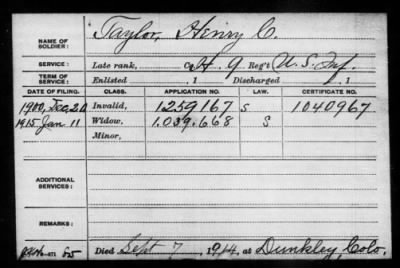 NAME OF SOLDIER: Taylor, Henry C.
SERVICE: Late rank, Co. H. 9 Reg't U.S. Inf.
TERM OF SERVICE: Enlisted , 1 Discharged , 1
DATE OF FILING. CLASS. APPLICATION NO. LAW. CERTIFICATE NO.
1900, Dec, 20 Invalid, 1259167 S 1040967
1915 Jan 11 Widow, 1.039.668 S
Minor,
ADDITIONAL SERVICES:
REMARKS:
Died Sept 7, 1914, at Dunkley, Colo,